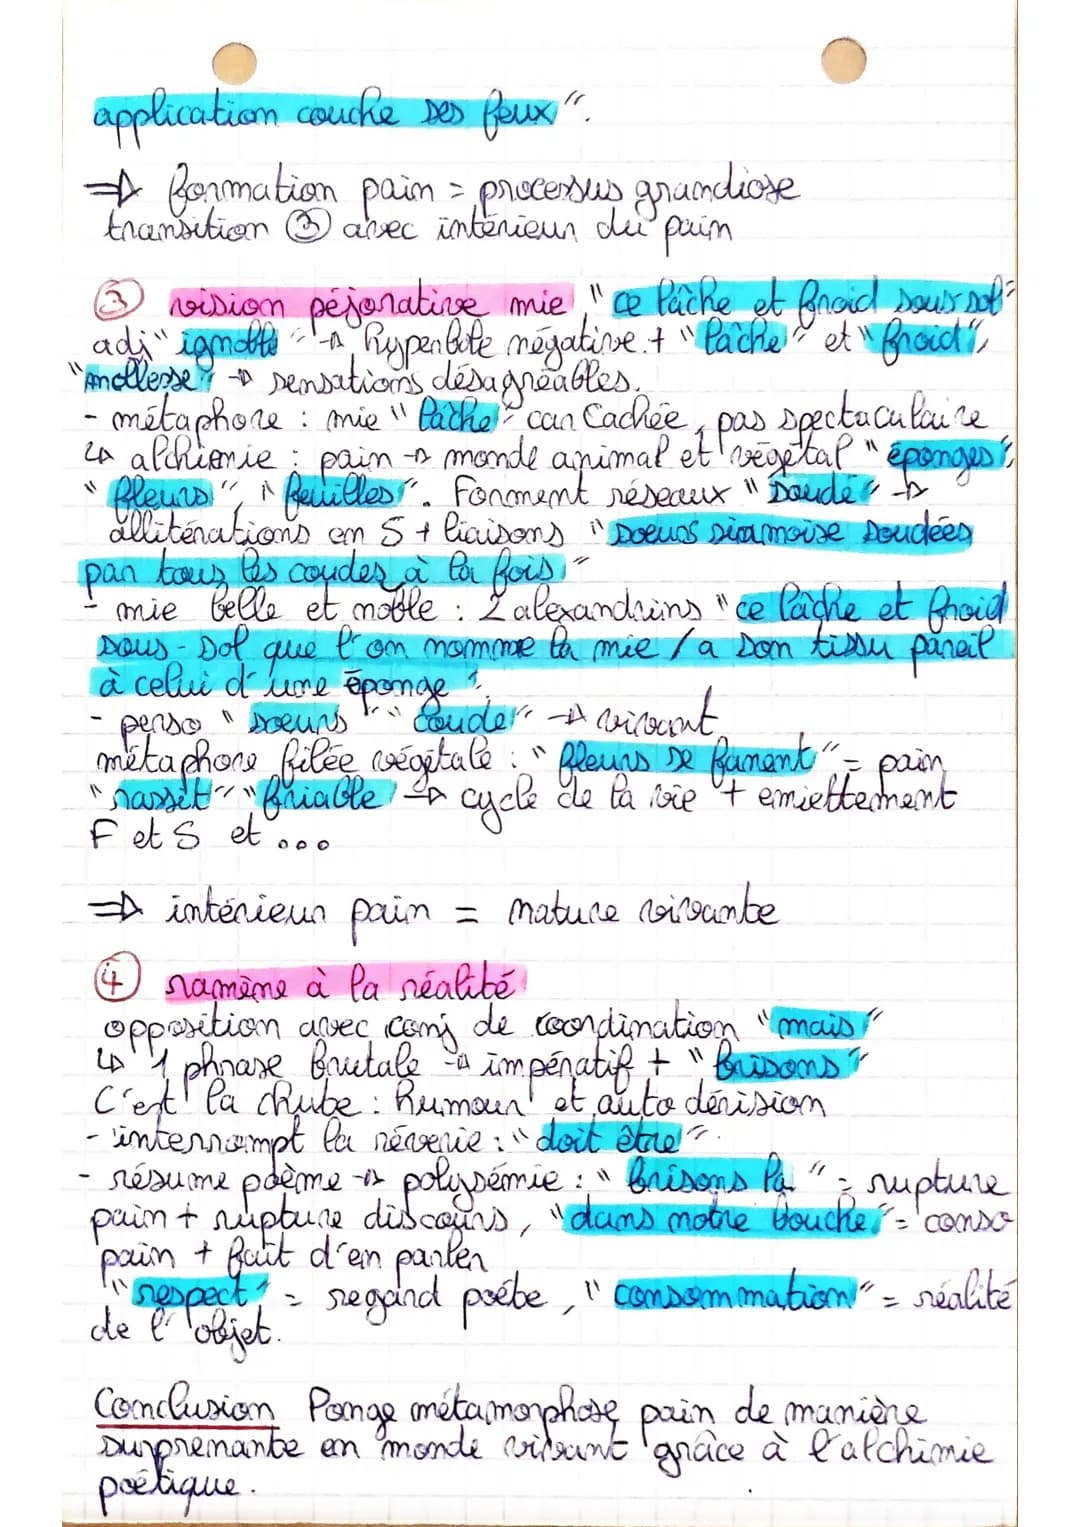 application couche ses feux".
=> formation pain = processus grandiose
transition ③ avec intérieur du pain
③ vision péjorative mie "ce lâche et froid sous sol"
adj "ignoble" -> hyperbole négative. + "lâche" et "froid",
"mollesse" -> sensations désagréables.
- métaphore : mie "lâche" car cachée, pas spectaculaire
↳ alchimie : pain -> monde animal et végétal "éponges",
"fleurs", "feuilles". Forment réseaux "soudé" ->
allitérations en S + liaisons "soeurs siamoise soudées
par tous les coudes à la fois"
- mie belle et noble : 2 alexandrins "ce lâche et froid
sous-sol que l'on nomme la mie / a son tissu pareil
à celui d'une éponge".
- perso "soeurs" "coude" -> vivant
métaphore filée végétale : "fleurs se fanent" = pain
"rassit" "friable" -> cycle de la vie + emiettement
F et S et ...
=> intérieur pain = nature vivante
④ ramène à la réalité
opposition avec conj de coordination "mais"
↳ 1 phrase brutale -> impératif + "brisons"
C'est la chute : humour et auto dérision
- interrompt la rêverie : "doit être".
- résume poème -> polysémie : "brisons la" = rupture
pain + rupture discours, "dans notre bouche" = conso
pain + fait d'en parler
"respect" = regard poète, "consommation" = réalité
de l'objet.
Conclusion Ponge métamorphose pain de manière
surprenante en monde vivant grâce à l'alchimie
poétique.